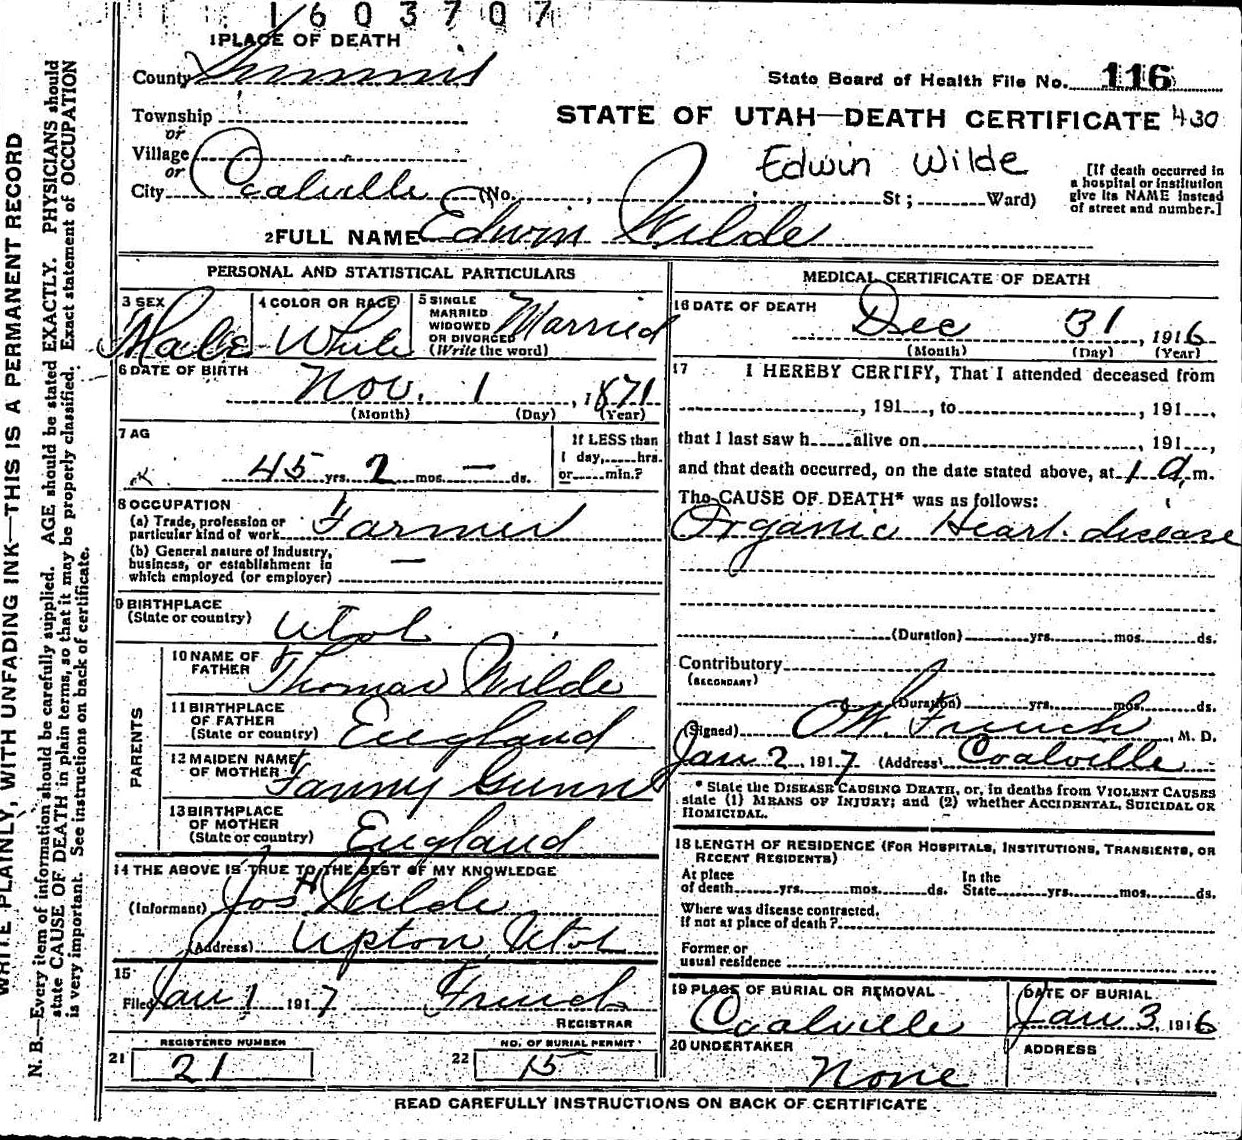 1603707
1 PLACE OF DEATH
County Summit
State Board of Health File No. 116
Township
or
STATE OF UTAH—DEATH CERTIFICATE 430
Village
or
Edwin Wilde
City Coalville (No. , St ; Ward)
[If death occurred in
a hospital or institution
give its NAME instead
of street and number.]
2 FULL NAME Edwin Wilde
PERSONAL AND STATISTICAL PARTICULARS
3 SEX
Male
4 COLOR OR RACE
White
5 SINGLE
MARRIED
WIDOWED
OR DIVORCED
(Write the word)
Married
6 DATE OF BIRTH
Nov. 1, 1871
(Month) (Day) (Year)
7 AG
45 yrs. 2 mos. — ds.
If LESS than
1 day, hrs.
or min.?
8 OCCUPATION
(a) Trade, profession or
particular kind of work Farmer
(b) General nature of Industry,
business, or establishment in
which employed (or employer) —
9 BIRTHPLACE
(State or country) Utah
PARENTS
10 NAME OF
FATHER Thomas Wilde
11 BIRTHPLACE
OF FATHER
(State or country) England
12 MAIDEN NAME
OF MOTHER Fanny Gunn
13 BIRTHPLACE
OF MOTHER
(State or country) England
14 THE ABOVE IS TRUE TO THE BEST OF MY KNOWLEDGE
(Informant) Jos H Wilde
(Address) Upton, Utah
15
Filed Jan 1 1917 French
REGISTRAR
21 REGISTERED NUMBER
21
22 NO. OF BURIAL PERMIT
15
MEDICAL CERTIFICATE OF DEATH
16 DATE OF DEATH
Dec 31, 1916
(Month) (Day) (Year)
17 I HEREBY CERTIFY, That I attended deceased from
, 191 , to , 191 ,
that I last saw h alive on , 191 ,
and that death occurred, on the date stated above, at 1 a. m.
The CAUSE OF DEATH* was as follows:
Organic Heart disease
(Duration) yrs. mos. ds.
Contributory
(SECONDARY)
(Duration) yrs. mos. ds.
(Signed) French, M. D.
Jan 2, 1917 (Address) Coalville
* State the DISEASE CAUSING DEATH, or, in deaths from VIOLENT CAUSES
state (1) MEANS OF INJURY; and (2) whether ACCIDENTAL, SUICIDAL OR
HOMICIDAL.
18 LENGTH OF RESIDENCE (FOR HOSPITALS, INSTITUTIONS, TRANSIENTS, OR
RECENT RESIDENTS)
At place
of death yrs. mos. ds.
In the
State yrs. mos. ds.
Where was disease contracted,
If not at place of death?
Former or
usual residence
19 PLACE OF BURIAL OR REMOVAL
Coalville
DATE OF BURIAL
Jan 3, 1916
20 UNDERTAKER
None
ADDRESS
READ CAREFULLY INSTRUCTIONS ON BACK OF CERTIFICATE
WRITE PLAINLY, WITH UNFADING INK—THIS IS A PERMANENT RECORD
N. B.—Every item of information should be carefully supplied. AGE should be stated EXACTLY. PHYSICIANS should
state CAUSE OF DEATH in plain terms, so that it may be properly classified. Exact statement of OCCUPATION
is very important. See instructions on back of certificate.